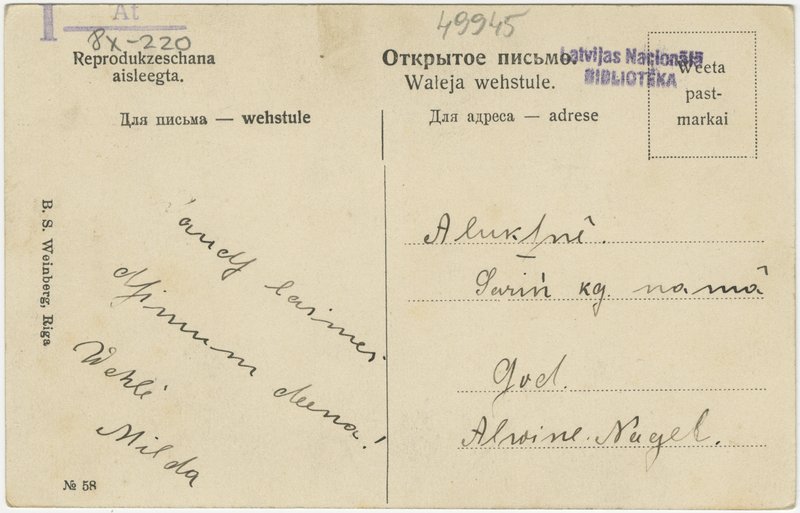 At
Px-220
49945
Reprodukzeschana
aisleegta.
Открытое письмо.
Waleja wehstule.
Latvijas Nacionālā
BIBLIOTĒKA
Weeta
past-
markai
Для письма — wehstule
Для адреса — adrese
B. S. Weinberg, Riga
laimes
dſimum deena!
Wehlē
Milda
Aluksnê.
Sariń kg. namâ
God.
Alwine Nagel.
№ 58